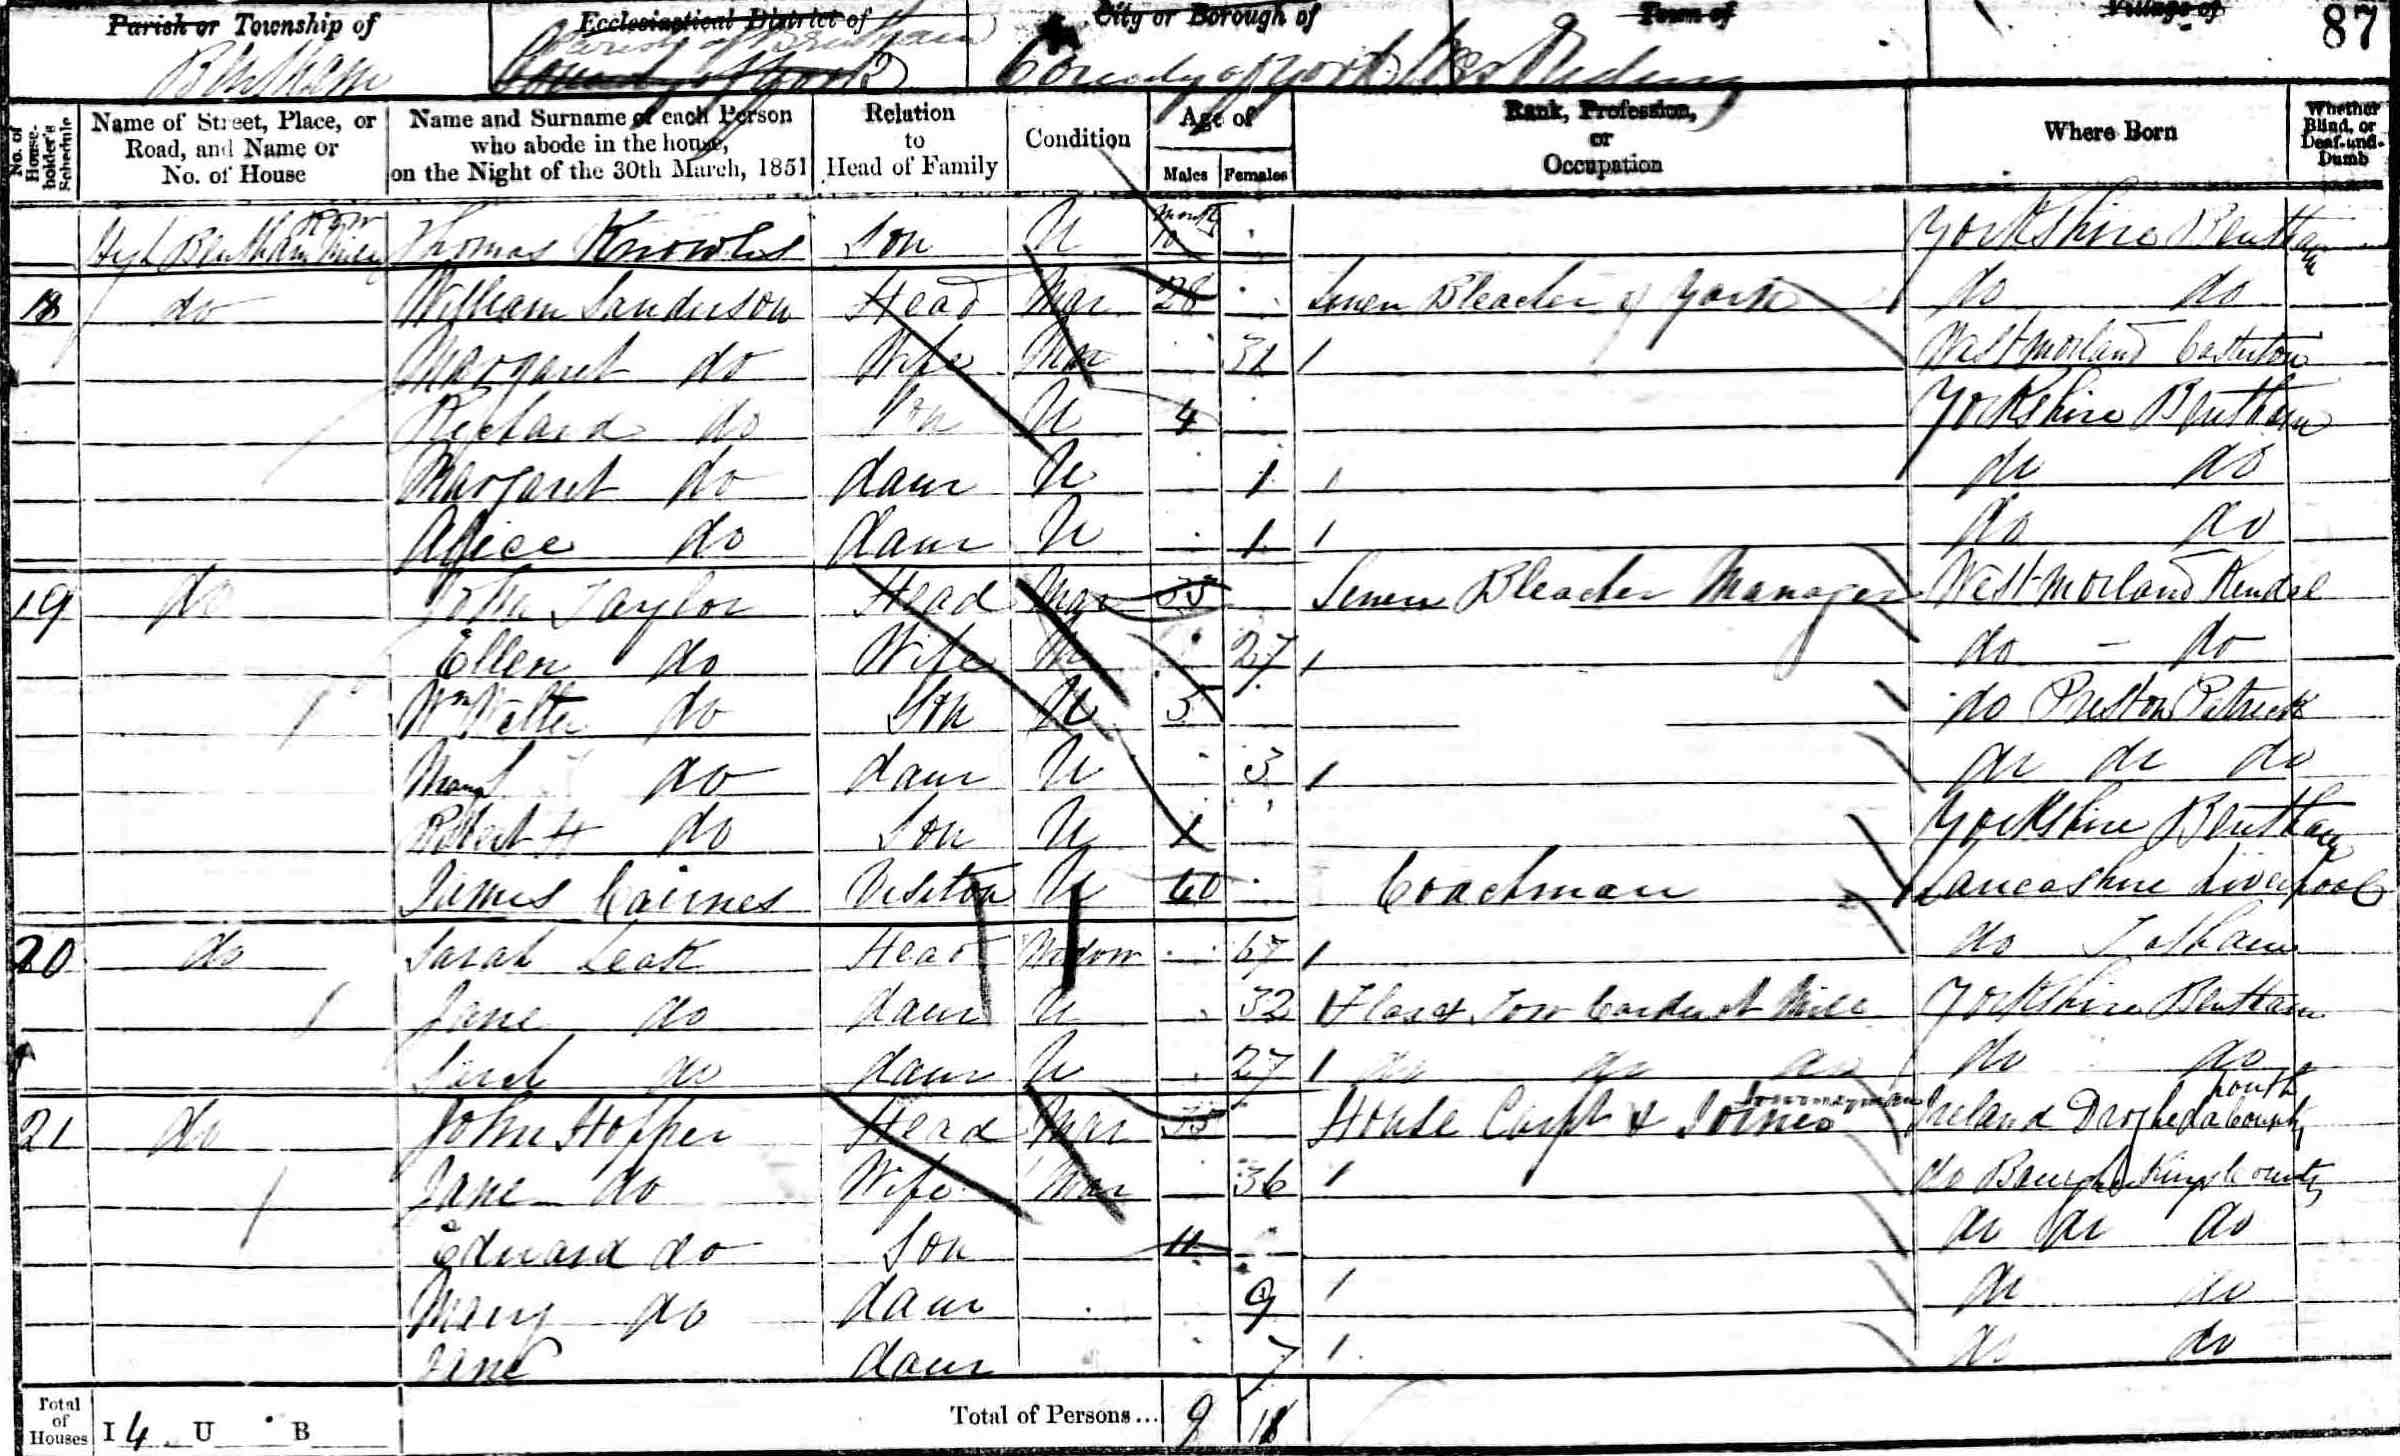 Parish or Township of Ecclesiastical District of City or Borough of Town of Village of 87
Bentham Parish of Bentham County of York West Riding
No. of House-holder's Schedule Name of Street, Place, or Road, and Name or No. of House Name and Surname of each Person who abode in the house, on the Night of the 30th March, 1851 Relation to Head of Family Condition Age of Males Females Rank, Profession, or Occupation Where Born Whether Blind, or Deaf-and-Dumb
High Bentham Row Thomas Knowles Son U Months 10 Yorkshire Bentham
18 do William Sanderson Head Mar 28 Linen Bleacher of Yarn do do
Margaret do Wife Mar 31 Westmorland Casterton
Richard do Son U 4 Yorkshire Bentham
Margaret do daur U 1 do do
Alice do daur U 1 do do
19 do John Taylor Head Mar 35 Linen Bleacher Manager Westmorland Kendal
Ellen do Wife M 27 do - do
Wm Walter do Son U 5 do Preston Patrick
Mary do daur U 3 do do do
Robert H do Son U 1 Yorkshire Bentham
James Cairnes Visitor U 60 Coachman Lancashire Liverpool
20 do Sarah Leak Head Widow 67 do Tatham
Jane do daur U 32 Flax & Tow Carder at Mill Yorkshire Bentham
Sarah do daur U 27 do do do do do
21 do John Hopper Head Mar 35 House Carpt & Joiner Journeyman Ireland Drogheda County Louth
Jane do Wife Mar 36 do Kings County
Edward do Son 11 do do do
Mary do daur 9 do do
Jane daur 7 do do
Total of Houses I 4 U B Total of Persons... 9 11